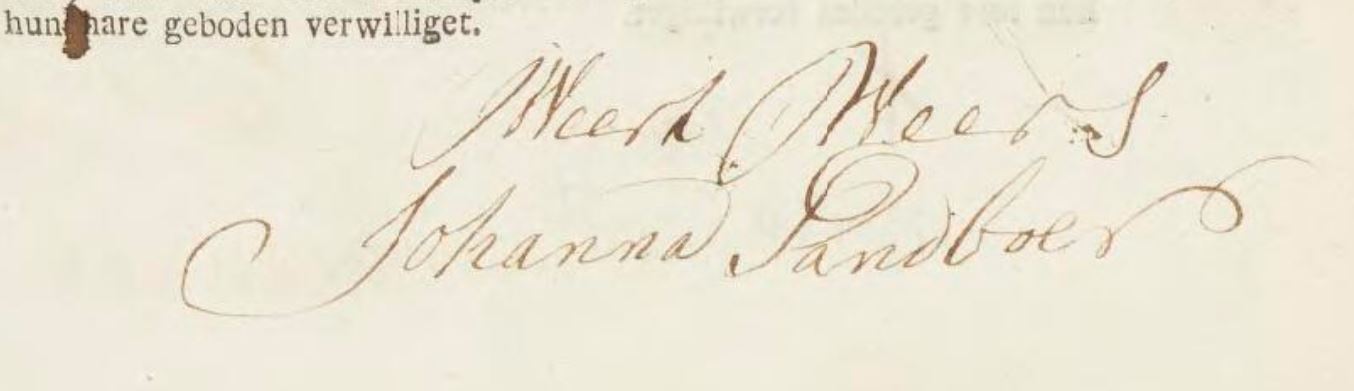 hunnare geboden verwilliget.
Weert Weers
Johanna Sandboer